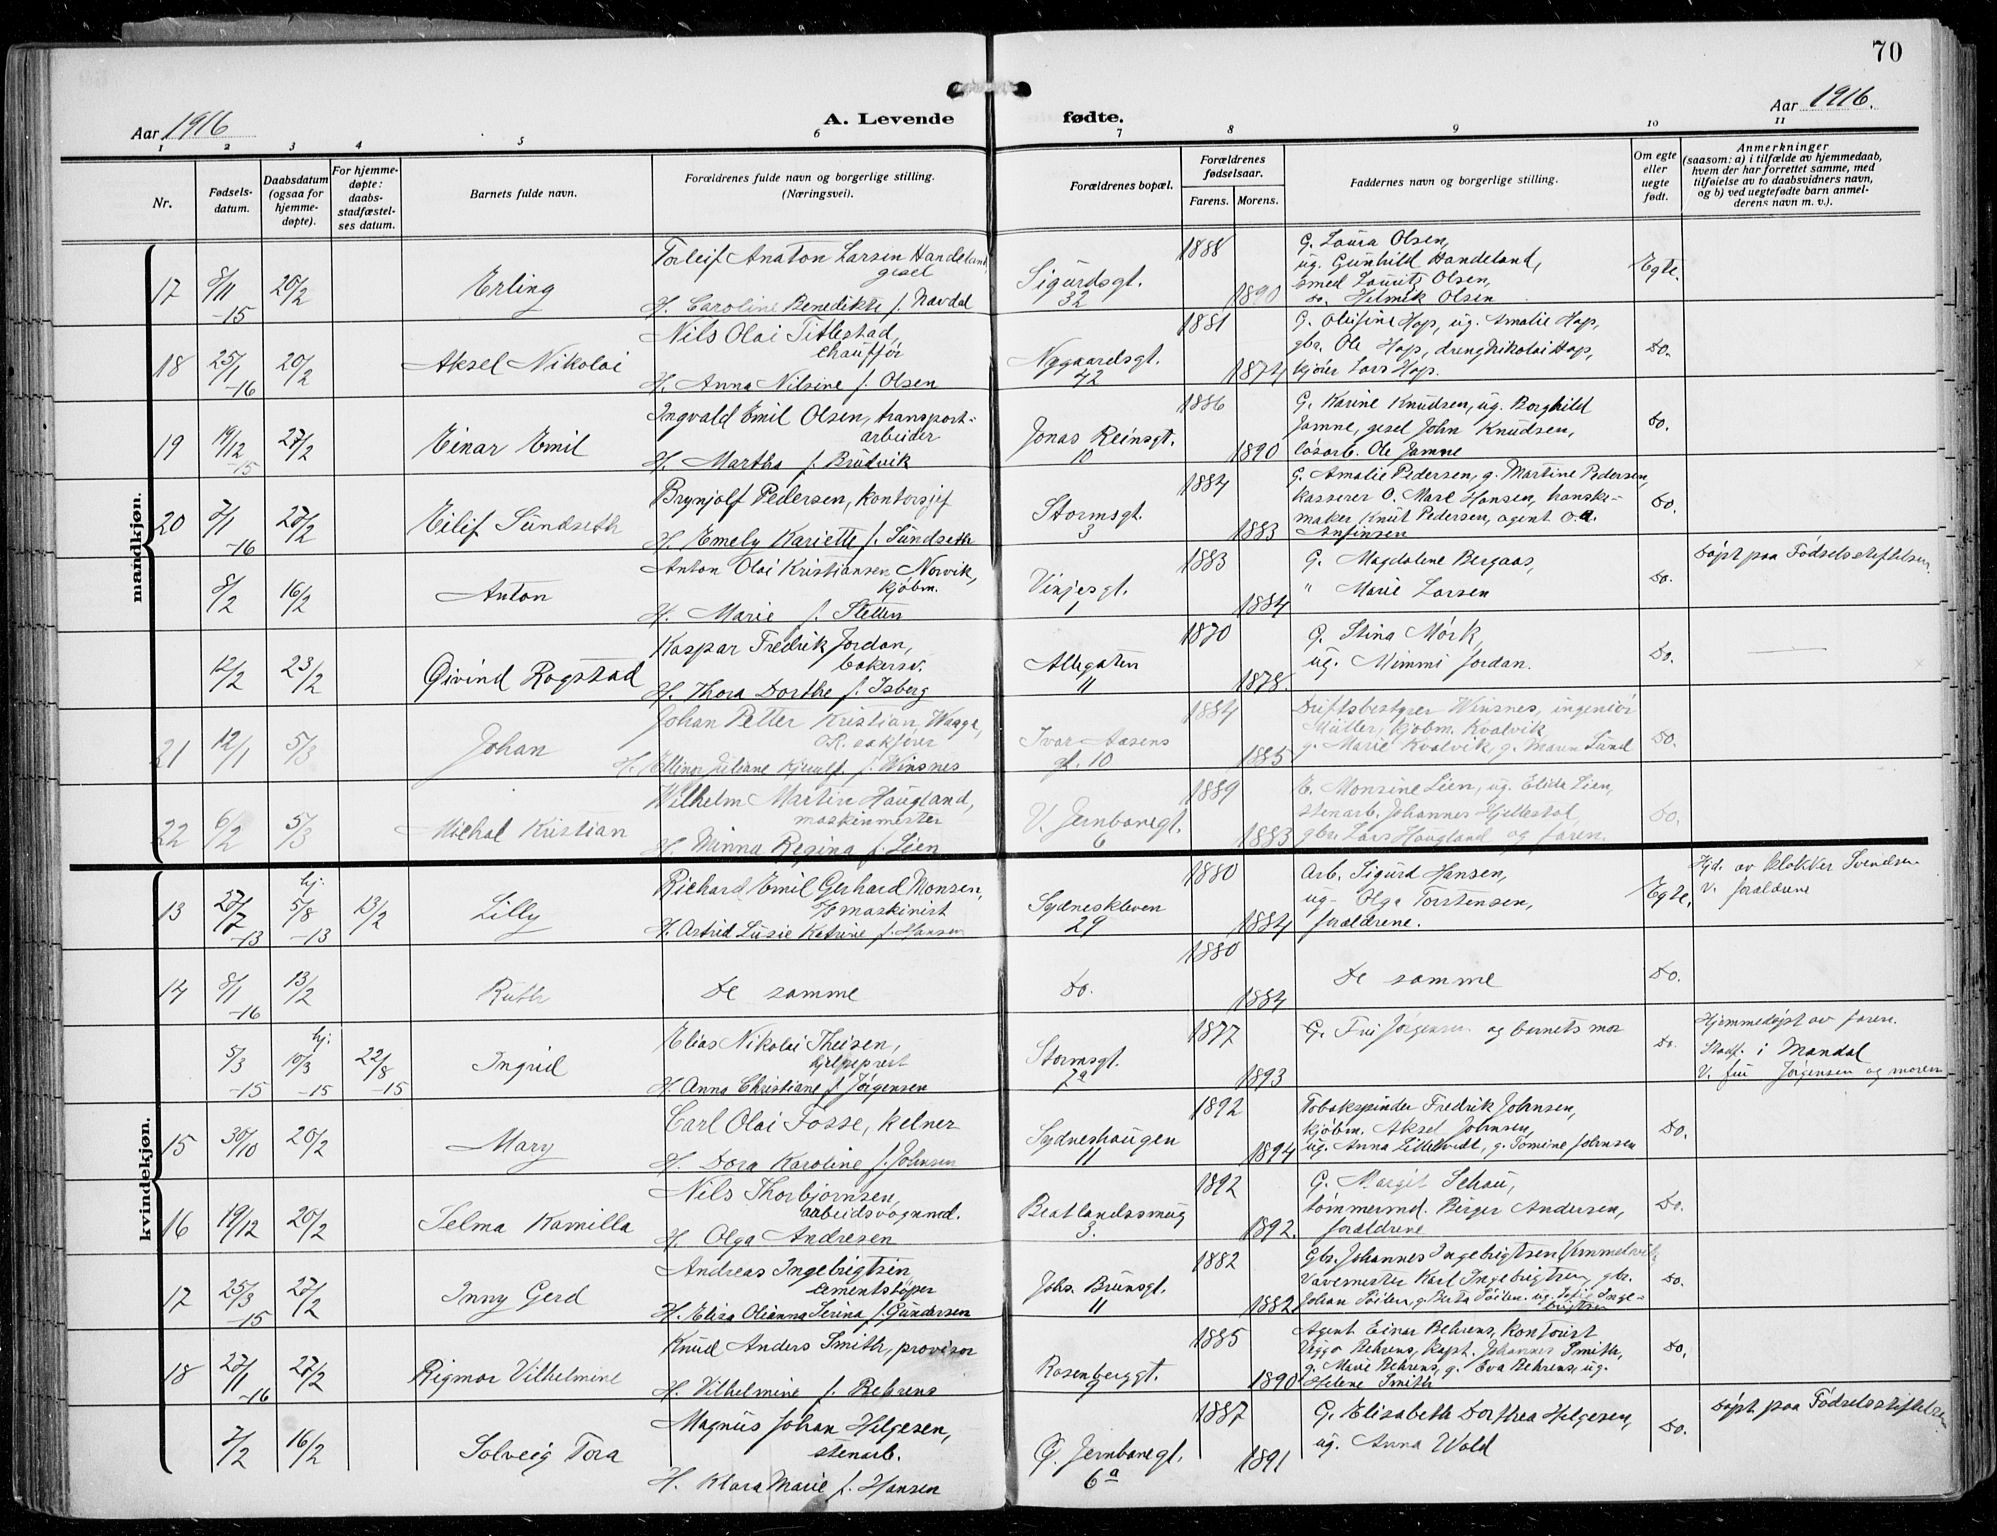 70
Aar 1916
A. Levende fødte.
Aar 1916.
1 2 3 4 5 6 7 8 9 10 11
Nr.
Fødsels-
datum.
Daabsdatum
(ogsaa for
hjemme-
døpte).
For hjemme-
døpte:
daabs-
stadfæstel-
ses datum.
Barnets fulde navn.
Forældrenes fulde navn og borgerlige stilling.
(Næringsvei).
Forældrenes bopæl.
Forældrenes
fødselsaar.
Farens. Morens.
Faddernes navn og borgerlige stilling.
Om egte
eller
uegte
født.
Anmerkninger
(saasom: a) i tilfælde av hjemmedaab,
hvem der har forrettet samme, med
tilføielse av to daabsvidners navn,
og b) ved uegtefødte barn anmel-
derens navn m. v.).
mandkjøn.
17 8/11 -15 20/2 Erling
Torleif Anaton Larsen Handeland,
gesel
H. Caroline Benedikte f. Navdal
Sigurdsgt.
32
1888 1890
G. Laura Olsen,
ug. Gunhild Handeland,
smed Lauritz Olsen,
do. Hilmik Olsen
Egte.
18 25/1 -16 20/2 Aksel Nikolai
Nils Olai Titlestad,
chauffør
H. Anna Nilsine f. Olsen
Nygaardsgt.
42
1881 1874
G. Olufine Hop, ug. Amalie Hop,
gbr. Ole Hop, dreng Nikolai Hop,
kjører Lars Hop.
Do.
19 19/12 -15 27/2 Einar Emil
Ingvald Emil Olsen, transport-
arbeider
H. Martha f. Brudvik
Jonas Reinsgt.
10
1886 1890
G. Karine Knudsen, ug. Borghild
Jamne, gesel John Knudsen,
løsarb. Ole Jamne
Do.
20 7/1 -16 27/2 Eilif Sundseth
Brynjolf Pedersen, kontorsjef
H. Emely Kariette f. Sundseth
Stormsgt.
3
1884 1883
G. Amalie Pedersen, g. Martine Pedersen,
kasserer O. Marl Hansen, hanske-
maker Knut Pedersen, agent O.A.
Anfinsen
Do.
8/2 16/2 Anton
Anton Olai Kristiansen Norvik,
kjøbm.
H. Marie f. Sletten
Vinjesgt.
1
1883 1884
G. Magdalene Bergaas,
" Marie Larsen
Do.
Døpt paa Fødselsstiftelsen.
12/2 23/2 Øivind Rogstad
Kaspar Fredrik Jordan,
bakersv.
H. Thora Dorthe f. Isberg
Allegaten
11
1870 1878.
G. Stina Mørk,
ug. Mimmi Jordan.
Do.
21 12/1 5/3 Johan
Johan Petter Kristian Waage,
O.R. sakfører
H. Ellinor Juliane Kjerulf f. Winsnes
Ivar Aasens
gt. 10
1884 1885
Driftsbestyrer Winsnes, ingeniør
Müller, kjøbm. Kvalvik,
g. Marie Kvalvik, g. Maren Lund
Do.
22 6/2 5/3 Michal Kristian
Wilhelm Martin Haugland,
maskinmester
H. Minna Regina f. Lien
V. Jernbanegt.
6
1889 1883
E. Monsine Lien, ug. Elida Lien,
stenarb. Johannes Hjellestad,
gbr. Lars Haugland og faren.
Do.
kvindekjøn.
13 27/7 -13 hj. 5/8 -13 13/2 Lilly
Richard Emil Gerhard Monsen,
maskinist
H. Astrid Lusie Katrine f. Hansen
Sydneskleven
29
1880 1884
Arb. Sigurd Hansen,
ug. Olga Torstensen,
forældrene.
Egte.
Hjd. av klokker Svendsen
V. forældrene
14 8/11 -16 13/2 Ruth
De samme
Do.
1880 1884
De samme
Do.
5/3 -15 hj. 10/3 -15 22/8 -15 Ingrid
Elias Nikolai Theisen,
hjelpeprest
H. Anna Christiane f. Jørgensen
Stormsgt.
7a
1877 1893
G. Fru Jørgensen og barnets mor
Do.
Hjemmedøpt av faren.
Stadf. i Mandal
V. fru Jørgensen og moren
15 30/10 20/2 Mary
Carl Olai Fosse, kelner
H. Dora Karoline f. Johnsen
Sydneshaugen
11
1892 1894
Tobakspinder Fredrik Johnsen,
kjøbm. Aksel Johnsen,
ug. Anna Lilletvedt, g. Tomine Johnsen
Do.
16 19/12 20/2 Selma Kamilla
Nils Thorbjørnsen,
arbeidsvognmd.
H. Olga Andresen
Beatlandssmug
3.
1892 1892.
G. Margit Schau,
tømmermd. Birger Andersen,
forældrene
Do.
17 25/3 -15 27/2 Inny Gerd
Andreas Ingebrigtsen
cementstøper
H. Eliza Olianna Serina f. Gundersen
Johs. Brunsgt.
11
1882 1882
Gbr. Johannes Ingebrigtsen
Vavemester Karl Ingebrigtsen, gbr.
Johan Søilen, g. Berta Søilen, ug. Inge-
brigtsen
Do.
18 27/11 -16 27/2 Rigmor Vilhelmine
Knud Anders Smith, provisor
H. Vilhelmine f. Behrens
Rosenberggt.
9
1885 1890
Agent Einar Behrens, kontorist
Viggo Behrens, kapt. Johannes Smith,
g. Marie Behrens, g. Eva Behrens, ug.
Helene Smith
Do.
7/2 16/2 Solveig Tora
Magnus Johan Helgesen,
stenarb.
H. Klara Marie f. Hansen
Ø. Jernbanegt.
6a
1887 1891
G. Elisabeth Dorthea Helgesen,
ug. Anna Wold
Do.
Døpt paa Fødselsstiftelsen